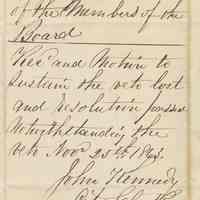 of the Members of the
Board
Rec'd and Motion to
sustain the veto lost
and resolution passed
Notwithstanding the
veto Nov 25th 186
John Kennedy
City Clerk